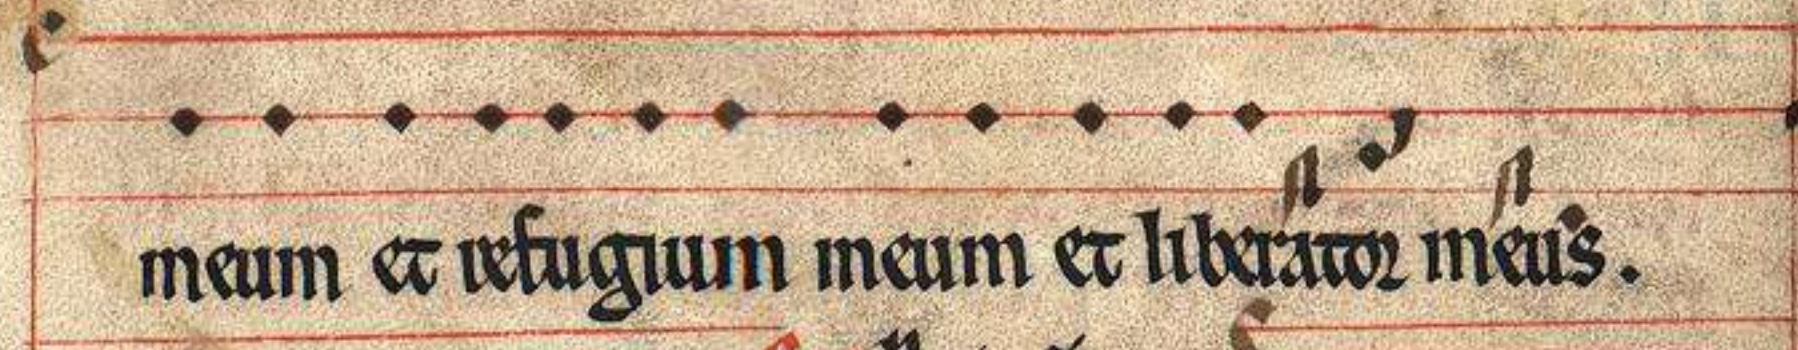 meum et refugium meum et liberator meus.